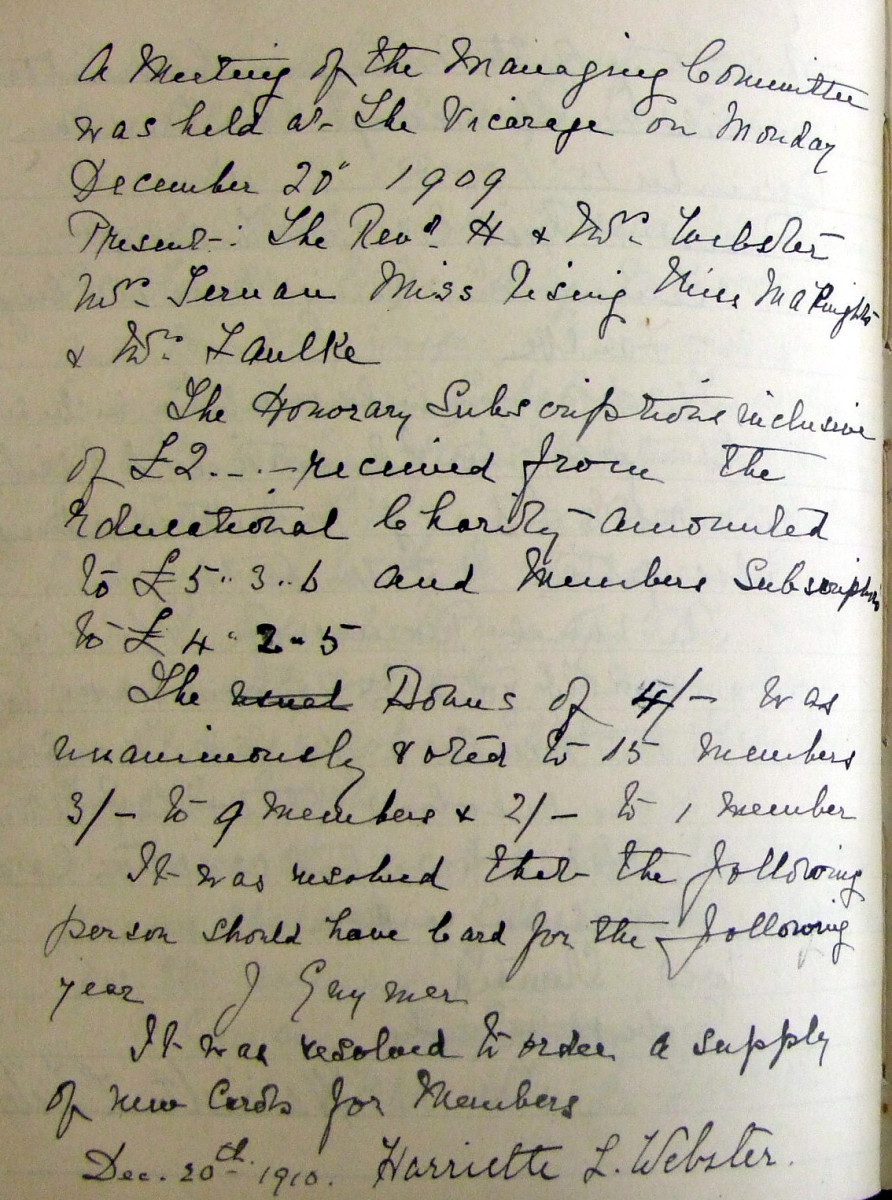 A Meeting of the Managing Committee
was held at The Vicarage on Monday
December 20th 1909
Present: The Revd. H & Mrs. Webster
Mrs. Ternan Miss Rising Miss
& Mrs. Faulke
The Honorary Subscriptions inclusive
of £2. - . - received from the
Educational Charity amounted
to £5 .. 3 .. 6 and Members Subscriptions
to £4 " 2 " 5
The usual Bonus of 4/- was
unanimously voted to 15 members
3/- to 9 members & 2/- to 1 member
It was resolved that the following
person should have Card for the following
year J Guymer
It was resolved to order a supply
of new Cards for Members
Dec. 20th. 1910. Harriette L. Webster.